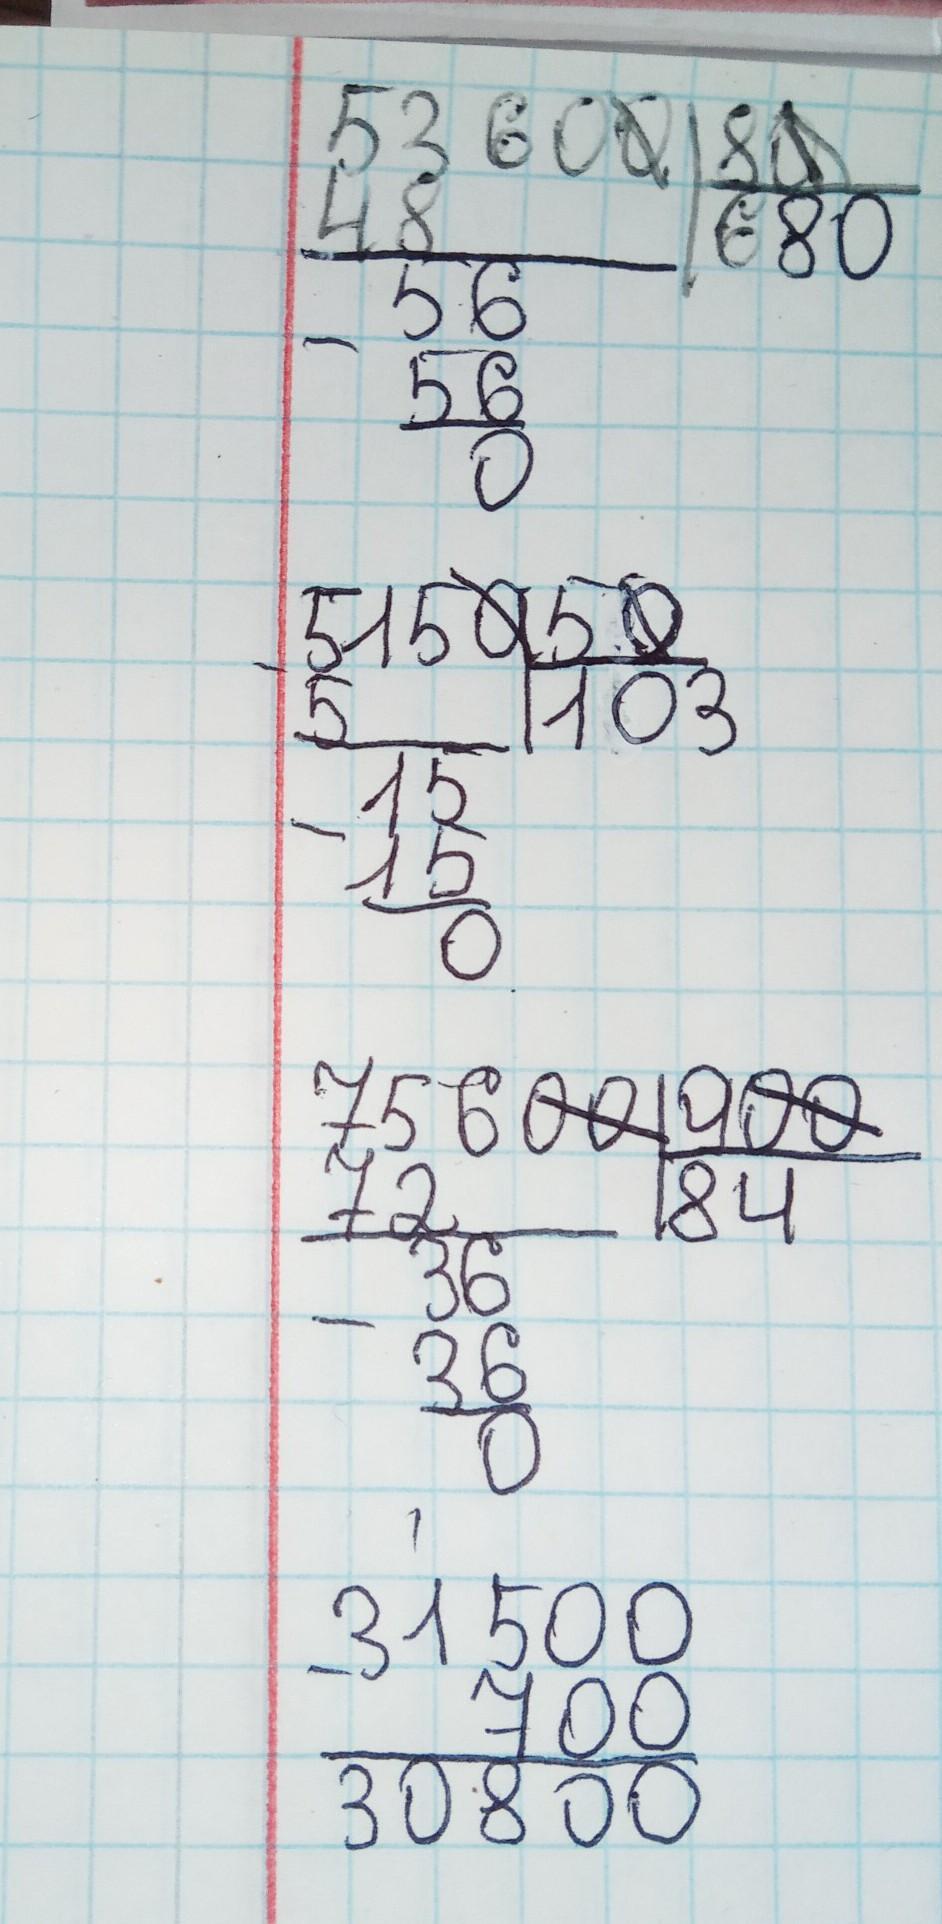 53600|80
48 680
56
- 56
0
5150|50
- 5 103
15
- 15
0
75600|900
72 84
36
- 36
0
1
31500
- 700
30800